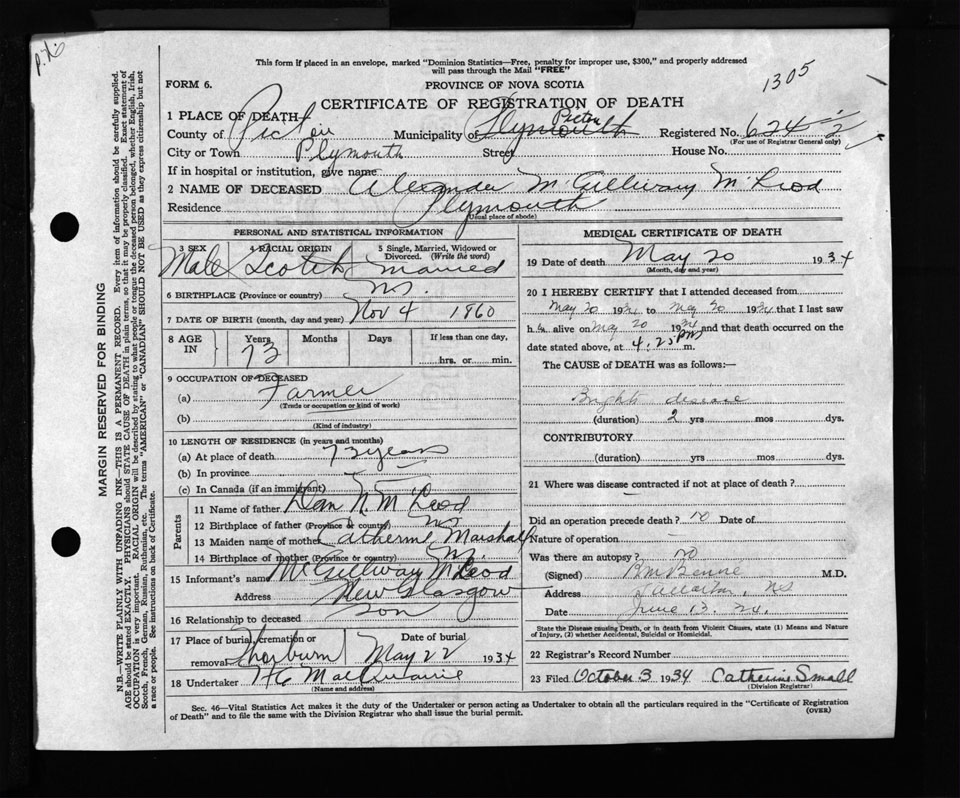 This form if placed in an envelope, marked "Dominion Statistics—Free, penalty for improper use, $300," and properly addressed
will pass through the Mail "FREE"
FORM 6.
PROVINCE OF NOVA SCOTIA
1305
CERTIFICATE OF REGISTRATION OF DEATH
1 PLACE OF DEATH
County of Pictou Municipality of Plymouth Pictou Registered No. 624
(For use of Registrar General only)
City or Town Plymouth Street House No.
If in hospital or institution, give name
2 NAME OF DECEASED Alexander McGillivary McLeod
Residence Plymouth
(Usual place of abode)
PERSONAL AND STATISTICAL INFORMATION
3 SEX 4 RACIAL ORIGIN 5 Single, Married, Widowed or
Divorced. (Write the word)
Male Scotch Married
6 BIRTHPLACE (Province or country) NS.
7 DATE OF BIRTH (month, day and year) Nov 4 1860
8 AGE IN Years Months Days If less than one day,
73 hrs. or min.
9 OCCUPATION OF DECEASED
(a) Farmer
(Trade or occupation or kind of work)
(b)
(Kind of industry)
10 LENGTH OF RESIDENCE (in years and months)
(a) At place of death 73 years
(b) In province
(c) In Canada (if an immigrant)
Parents
11 Name of father Dan N. McLeod
12 Birthplace of father (Province or country) NS
13 Maiden name of mother Catherine Marshall
14 Birthplace of mother (Province or country) NS.
15 Informant's name McGillivary McLeod
Address New Glasgow
16 Relationship to deceased son
17 Place of burial, cremation or Date of burial
removal Thorburn May 22 1934
18 Undertaker H G MacQuarrie
(Name and address)
MEDICAL CERTIFICATE OF DEATH
19 Date of death May 20 1934
(Month, day and year)
20 I HEREBY CERTIFY that I attended deceased from
May 20 1934 to May 20 1934 that I last saw
h im alive on May 20 1934 and that death occurred on the
date stated above, at 4.25 PM m.
The CAUSE of DEATH was as follows:—
Brights disease
(duration) 2 yrs mos dys.
CONTRIBUTORY
(duration) yrs mos dys.
21 Where was disease contracted if not at place of death?
Did an operation precede death? no Date of
Nature of operation
Was there an autopsy? no
(Signed) M.D.
Address NS
Date June 13. 34.
State the Disease causing Death, or in death from Violent Causes, state (1) Means and Nature
of Injury, (2) whether Accidental, Suicidal or Homicidal.
22 Registrar's Record Number
23 Filed October 3 1934 Catherine Small
(Division Registrar)
Sec. 46—Vital Statistics Act makes it the duty of the Undertaker or person acting as Undertaker to obtain all the particulars required in the "Certificate of Registration
of Death" and to file the same with the Division Registrar who shall issue the burial permit. (OVER)
MARGIN RESERVED FOR BINDING
N.B.—WRITE PLAINLY WITH UNFADING INK—THIS IS A PERMANENT RECORD. Every item of information should be carefully supplied.
AGE should be stated EXACTLY. PHYSICIANS should STATE CAUSE OF DEATH in plain terms, so that it may be properly classified. Exact statement of
OCCUPATION is very important. RACIAL ORIGIN will be described by stating to what people or tongue the deceased person belonged, whether English, Irish,
Scotch, French, German, Russian, Ruthenian, etc. The terms "AMERICAN" or "CANADIAN" SHOULD NOT BE USED as they express citizenship but not
a race or people. See instructions on back of Certificate.